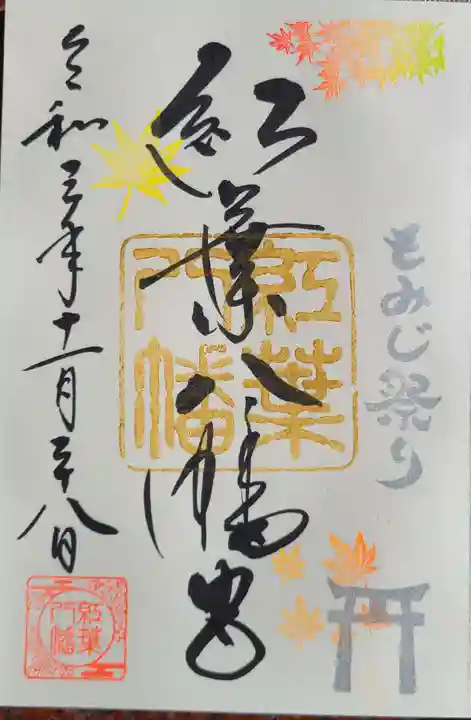 もみじ祭り
紅葉八幡宮
紅葉
八幡
令和三年十一月二十八日
紅葉
八幡